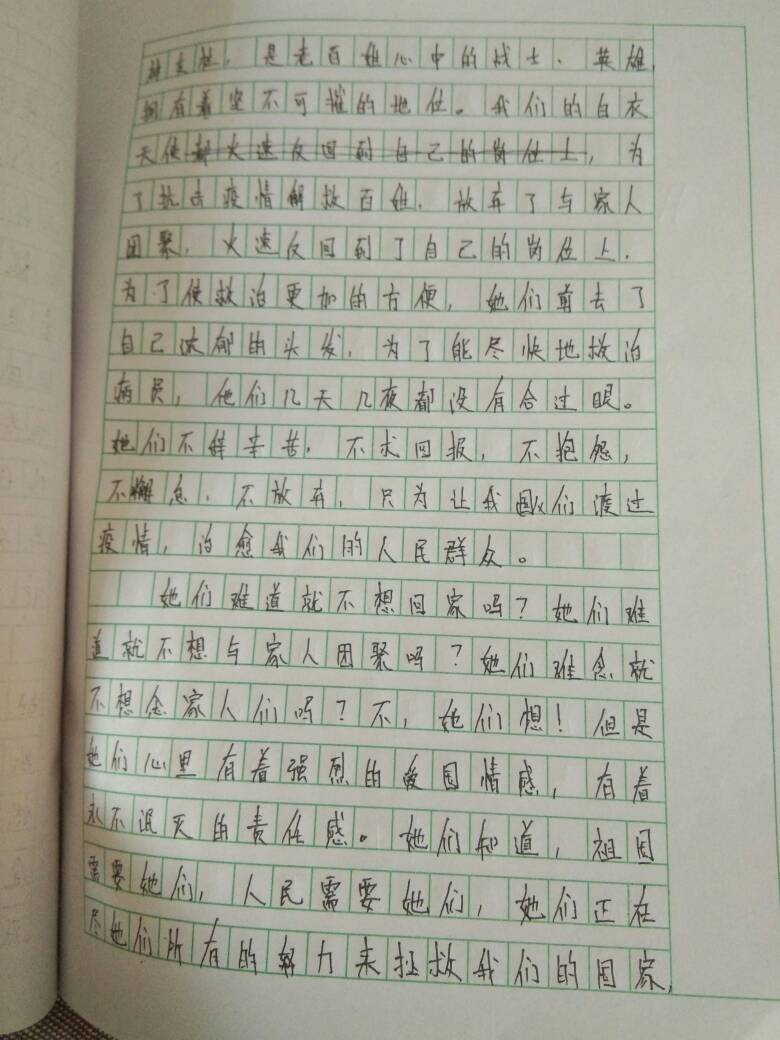 神支柱，是老百姓心中的战士、英雄，
拥有着坚不可摧的地位。我们的白衣
天使都火速反回到自己的岗位上，为
了抗击疫情解救百姓，放弃了与家人
团聚，火速反回到了自己的岗位上，
为了使救治更加的方便，她们剪去了
自己浓郁的头发，为了能尽快地救治
病员，他们几天几夜都没有合过眼。
她们不辞辛苦，不求回报，不抱怨，
不懈怠，不放弃，只为让我们渡过
疫情，治愈我们的人民群众。
她们难道就不想回家吗？她们难
道就不想与家人团聚吗？她们难念就
不想念家人们吗？不，她们想！但是
她们心里有着强烈的爱国情感，有着
永不泯灭的责任感。她们知道，祖国
需要她们，人民需要她们，她们正在
尽她们所有的努力来拯救我们的国家，